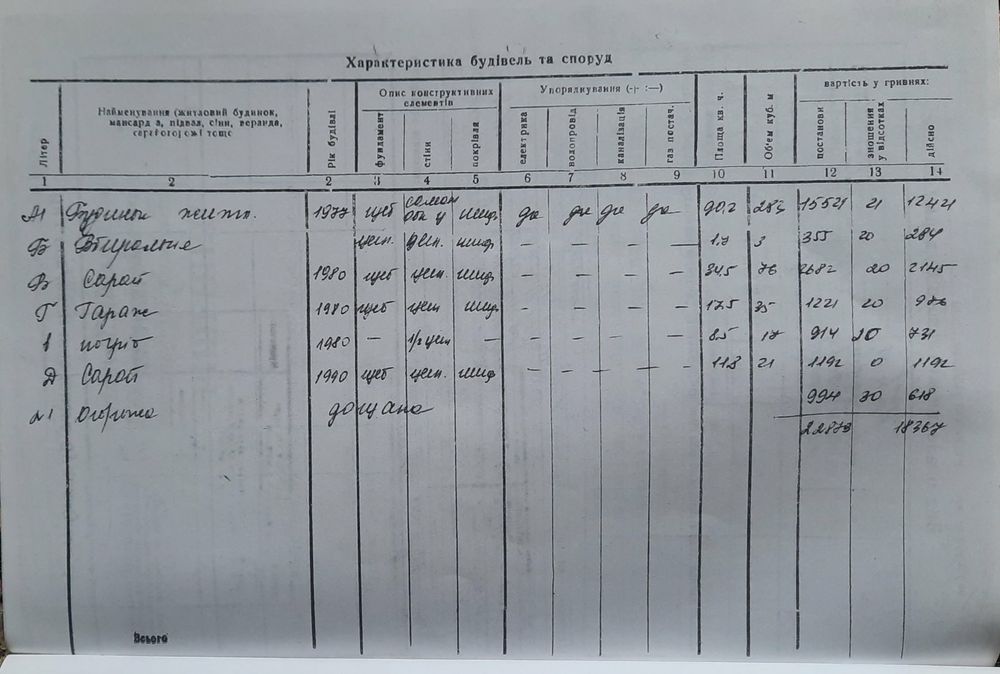 Характеристика будівель та споруд
Літер
Найменування (житловий будинок, мансарда, підвал, сіни, веранда, сарай, огорожі тощо
Рік будівлі
Опис конструктивних елементів
фундамент
стіни
покрівля
Упорядкування (-|- :—)
електрика
водопровід
каналізація
газ
Площа кв. ч.
Об'єм куб. м
вартість у гривнях:
постанови
зношення у відсотках
дійсно
1 2 2 3 4 5 6 7 8 9 10 11 12 13 14
Будинок житл. 1977 шиф да да да да 90,2 15521 21 12421
Б Вбиральня цегл. шиф — — — — 1.7 3 355 20 284
В Сарай 1980 цег. шиф — — — — 34.5 76 2682 20 2145
Г Гараж 1980 цег шиф — — — — 17.5 35 1221 20
погріб 1980 — 8.5 17 914 20 731
Д Сарай 1990 цег. шиф — — — — 11.8 21 1192 0 1192
Огорожа дощана 994 30 618
18367
Всього